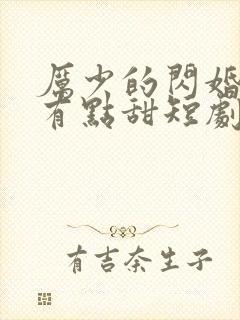 厲少的閃婚
有點甜短劇
有吉奈生子